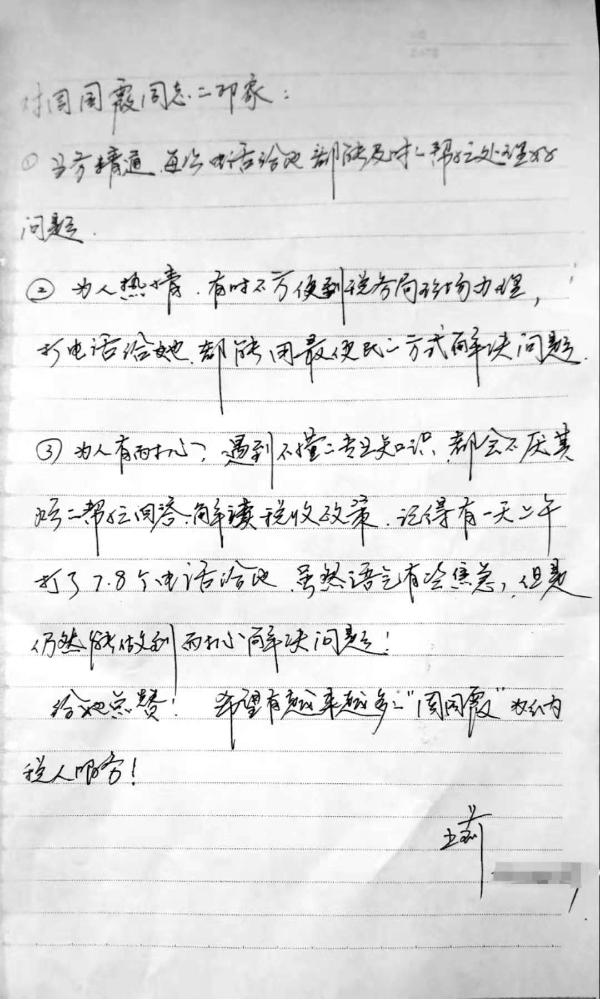 对周国霞同志的印象:
① 业务精通,每次电话给她都能及时的帮忙处理好
问题.
② 为人热情,有时不方便到税务局现场办理,
打电话给她,都能用最便民的方式解决问题.
③ 为人有耐心,遇到不懂的专业知识,都会不厌其
烦的帮忙回答、解读税收政策.记得有一天上午
打了7.8个电话给她,虽然语气有些焦急,但是
仍然能做到耐心解决问题!
给她点赞! 希望有越来越多的"周国霞"为纳
税人服务!